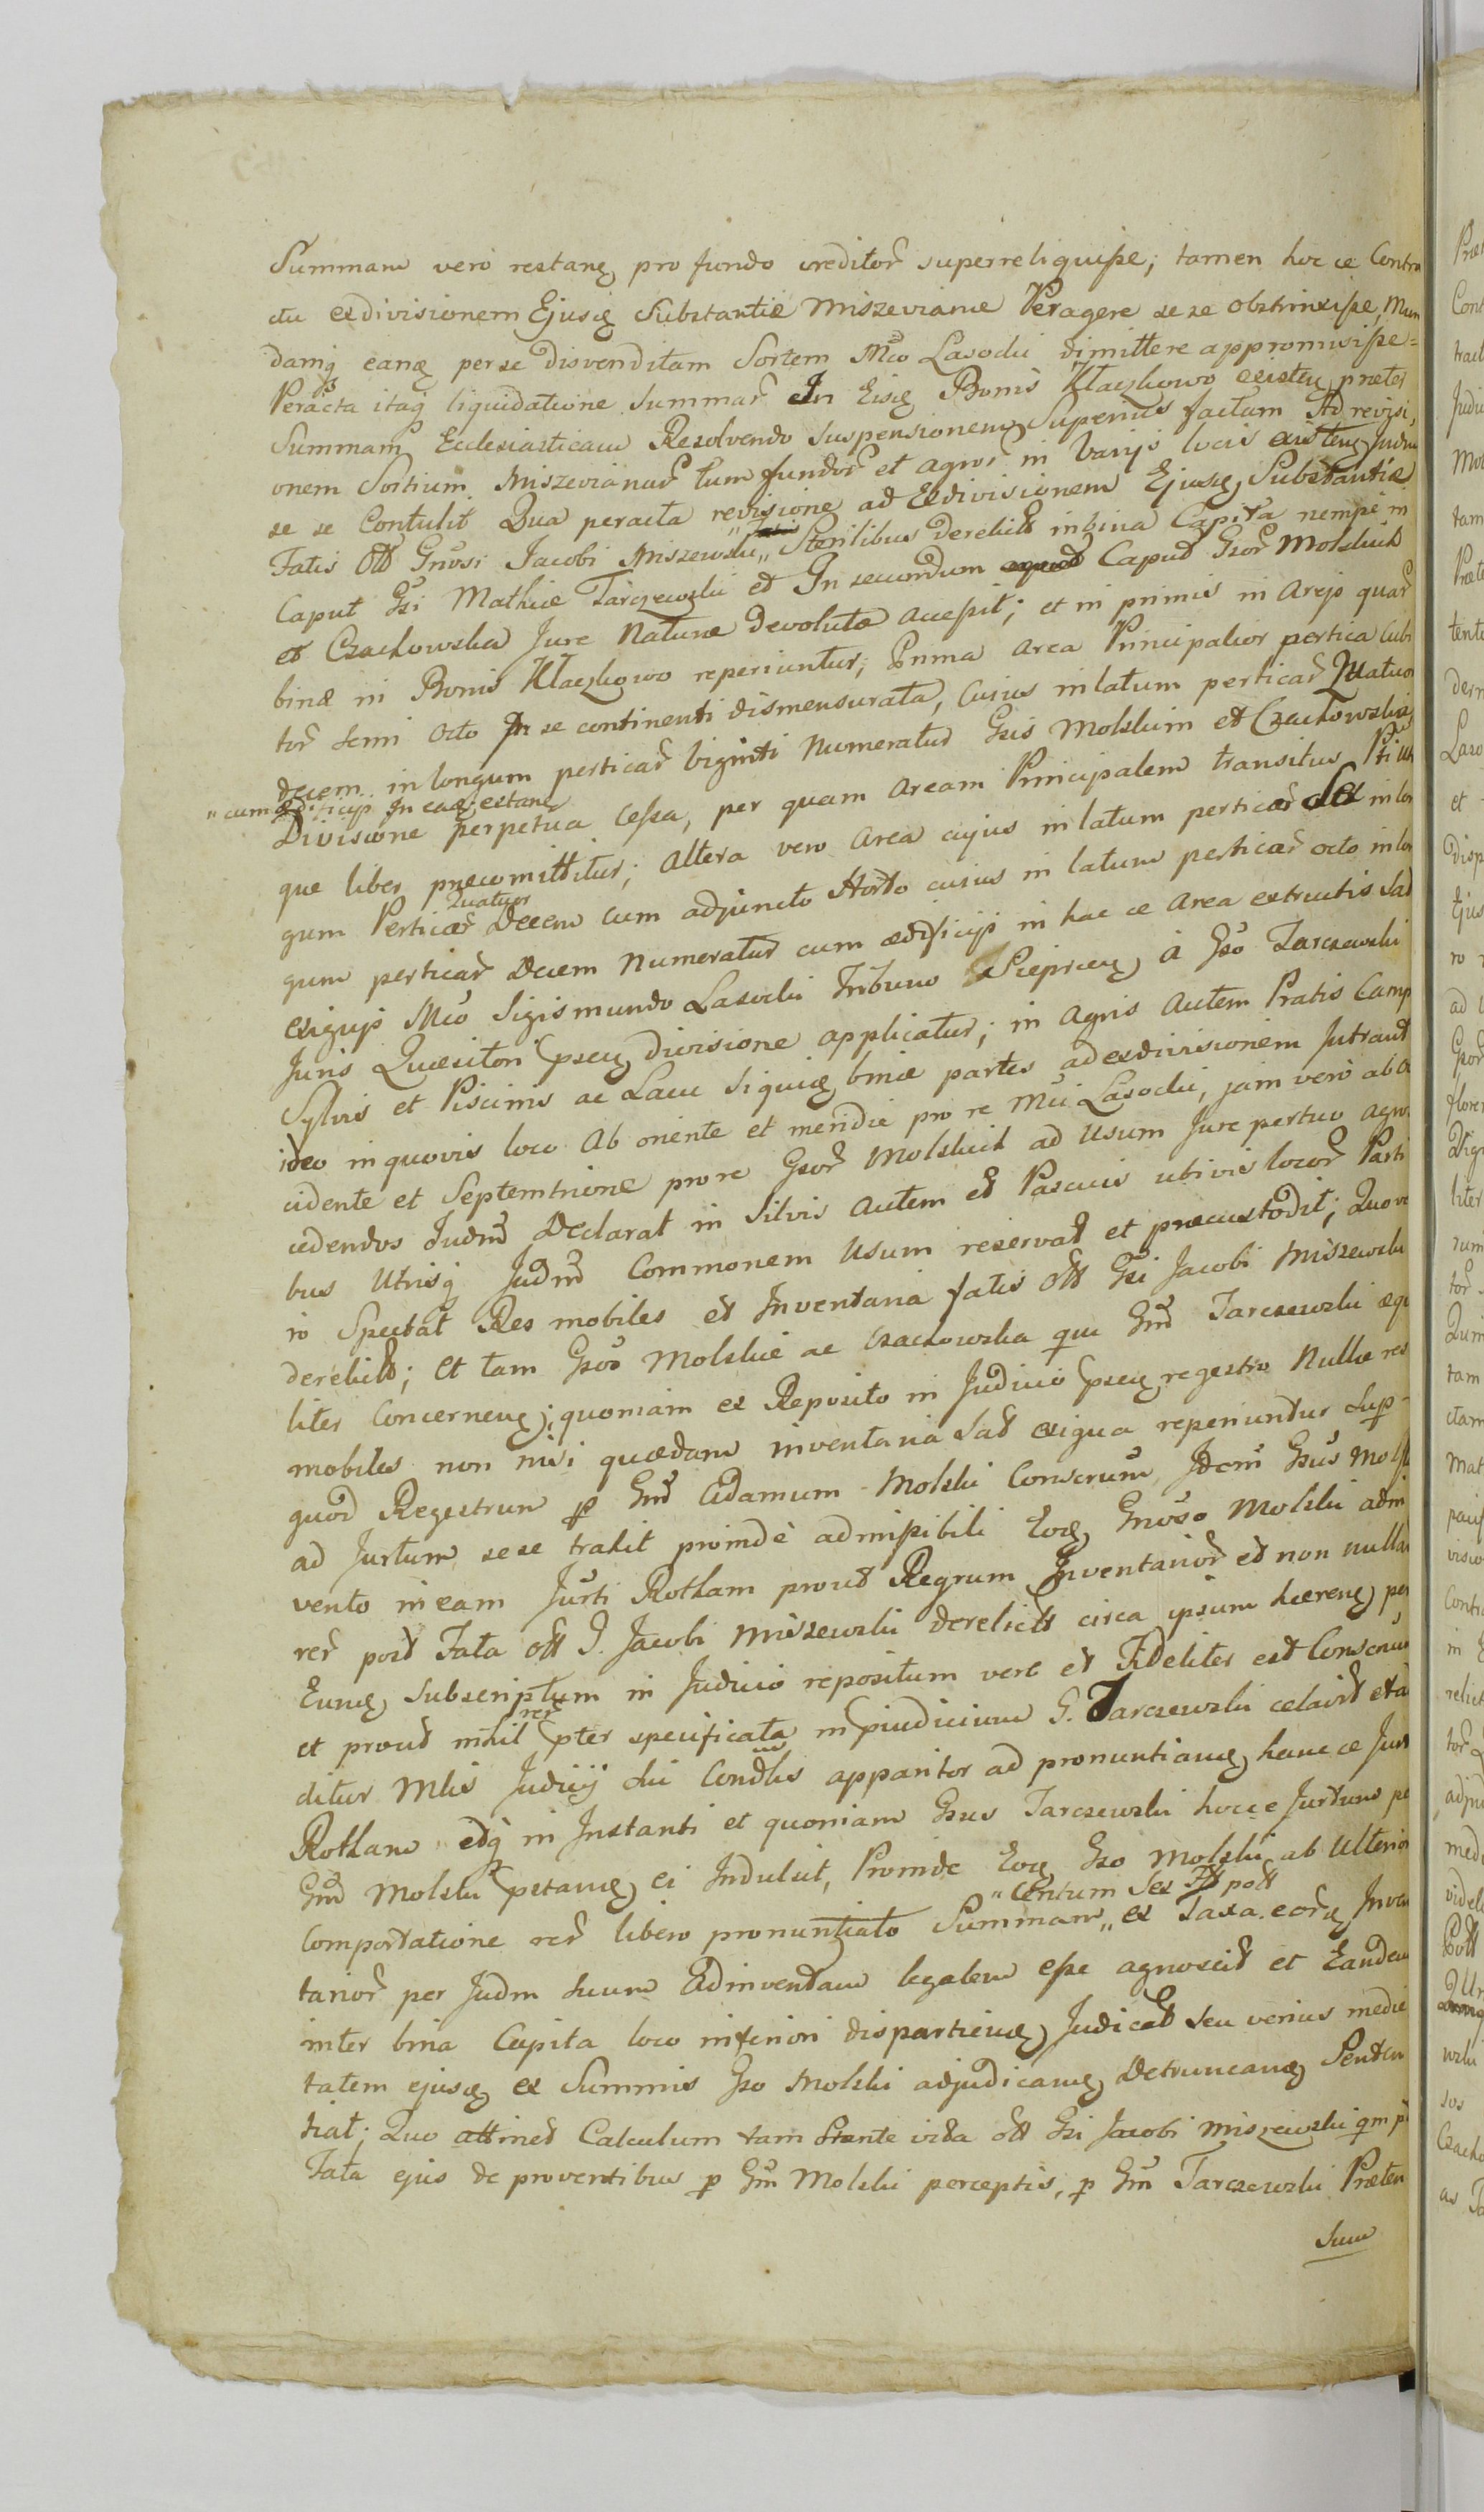 Summam vero restanẽ pro fundo creditor̃ superreliquiſse; tamen hoc ce Contra
ctu exdivisionem Ejusẽ Substantiæ Miszevianæ Peragere se se obstrinxiſse, Mun
damq̃ eanẽ per se disvenditam Sortem Mco Lasocki dimittere appromisiſse =
Peracta itaq̃ liquidatione Summar̃ In Eisẽ Bonis Kłaczkowo existeñ præter
Summam Ecclesiasticam Resolvendo suspensionem Superius factam Ad revisi
onem Sortium Miszevianar̃ tum fundor̃ et agror̃ in varijs locis existenẽ Judm
se se Contulit Qua peracta revisione ad Exdivisionem Ejusẽ Substantiæ
Fatis Olt Gnosi Jacobi Miszewski „ Sterilibus derelict in bina Capita nempe in
Caput Gsi Mathiæ Tarczewski et In secundum Caput Gsor̃ Molskich
et Czachowska Jure Naturæ devolutæ acceſsit; et in primis in Arejs quar̃
binæ in Bonis Kłaczkowo reperiuntur, Prima area Principalior pertica Cubi
tor̃ Semi Octo In se continenti dismensurata, Cujus in latum perticar̃ Quatuor
decem in longum perticar̃ viginti Numeratur Gsis Molskim et Czachowska
„ cum ædificijs In eaẽ extanẽ
Divisione perpetua Ceſsa, per quam Aream Principalem transitus Pti Utri
que liber præcomittitur; Altera vero Area cujus in latum perticar̃ Sex in lon
Quatuor
gum Perticar̃ Decem cum adjuncto Horto cujus in latum perticar̃ octo in lon
gum perticar̃ Decem Numeratur cum ædificijs in hac ce Area extructis Sat
exiguis Mco Sigismundo Lasocki Tribuno Sieprceñ à Gso Tarczewski
Juris Quæsitori pseñ divisione applicatur; in Agris Autem Pratis Camp
Sylvis et Piscinis ac Lacu siquiẽ binæ partes ad exdivisionem Intrant
ideo in quovis loco Ab oriente et meridie pro re Mci Lasocki, jam vero ab oc
cidente et Septemtrione pro re Gsor̃ Molskich ad Usum Jure perpetuo agros
cedendos Judm̃ Declarat in Silvis autem et Pascuis ubivis locor̃ Parti
bus Utrisq̃ Judm̃ Commonem Usum reservat et præcustodit; Quo ve
ro Spectat Res mobiles et Inventaria fatis Olt Gsi Jacobi Miszewski
derelict; et tam Gsos Molskie ac Czachowska qm Gm̃ Tarczewski æqu
liter Concernenẽ; quoniam ex Reposito in Judicio pseñ regestro Nullæ res
mobiles non nisi quædam inventaria Sat exigua reperiuntur Sup-
quod Regestrum ꝑ Gm̃ Adamum Molski Conscrum̃, Idem Gsus Molsk
ad Jurtum sese trahit proindè admiſsibili Eoẽ Gnoso Molski adin
vento in eam Jurti Rotham prout Regrum Inventarior̃ et non nullar̃
rer̃ post Fata Olt G. Jacobi Miszewski derelict circa ipsum hæreñ per
Eunẽ subscriptum in Judicio repositum vere et Fideliter est Conscrum
rer̃
et prout nihil pter specificata in piudicium G. Tarczewski celavit et ad
ditur Mlis Judicij Sui Condlis apparitor ad pronuntianẽ hanc ce Jurti
Rotham edq̃ in Instanti et quoniam Gsus Tarczewski hocce Jurtum per
Gm̃ Molski pstanẽ ei Indulsit, Proinde Eoẽ Gso Molski ab Ulterior
„ Centum Sex ft polt
Comportatione rer̃ libero pronuntiato Summam „ ex Taxa eorẽ Inven
tarior̃ per Judm suum Adinventam legalem eſse agnoscit et Eandem
inter bina Capita loco inferiori dispartienẽ Judicat seu verius medie
tatem ejusẽ ex Summis Gso Molski adjudicanẽ Detruncanẽ Senten
tiat; Quo attinet Calculum tam Stante vita Olt Gsi Jacobi Miszewski qm p
Fata ejus de proventibus ꝑ Gm̃ Molski perceptis, ꝑ Gm̃ Tarczewski Præten
sum